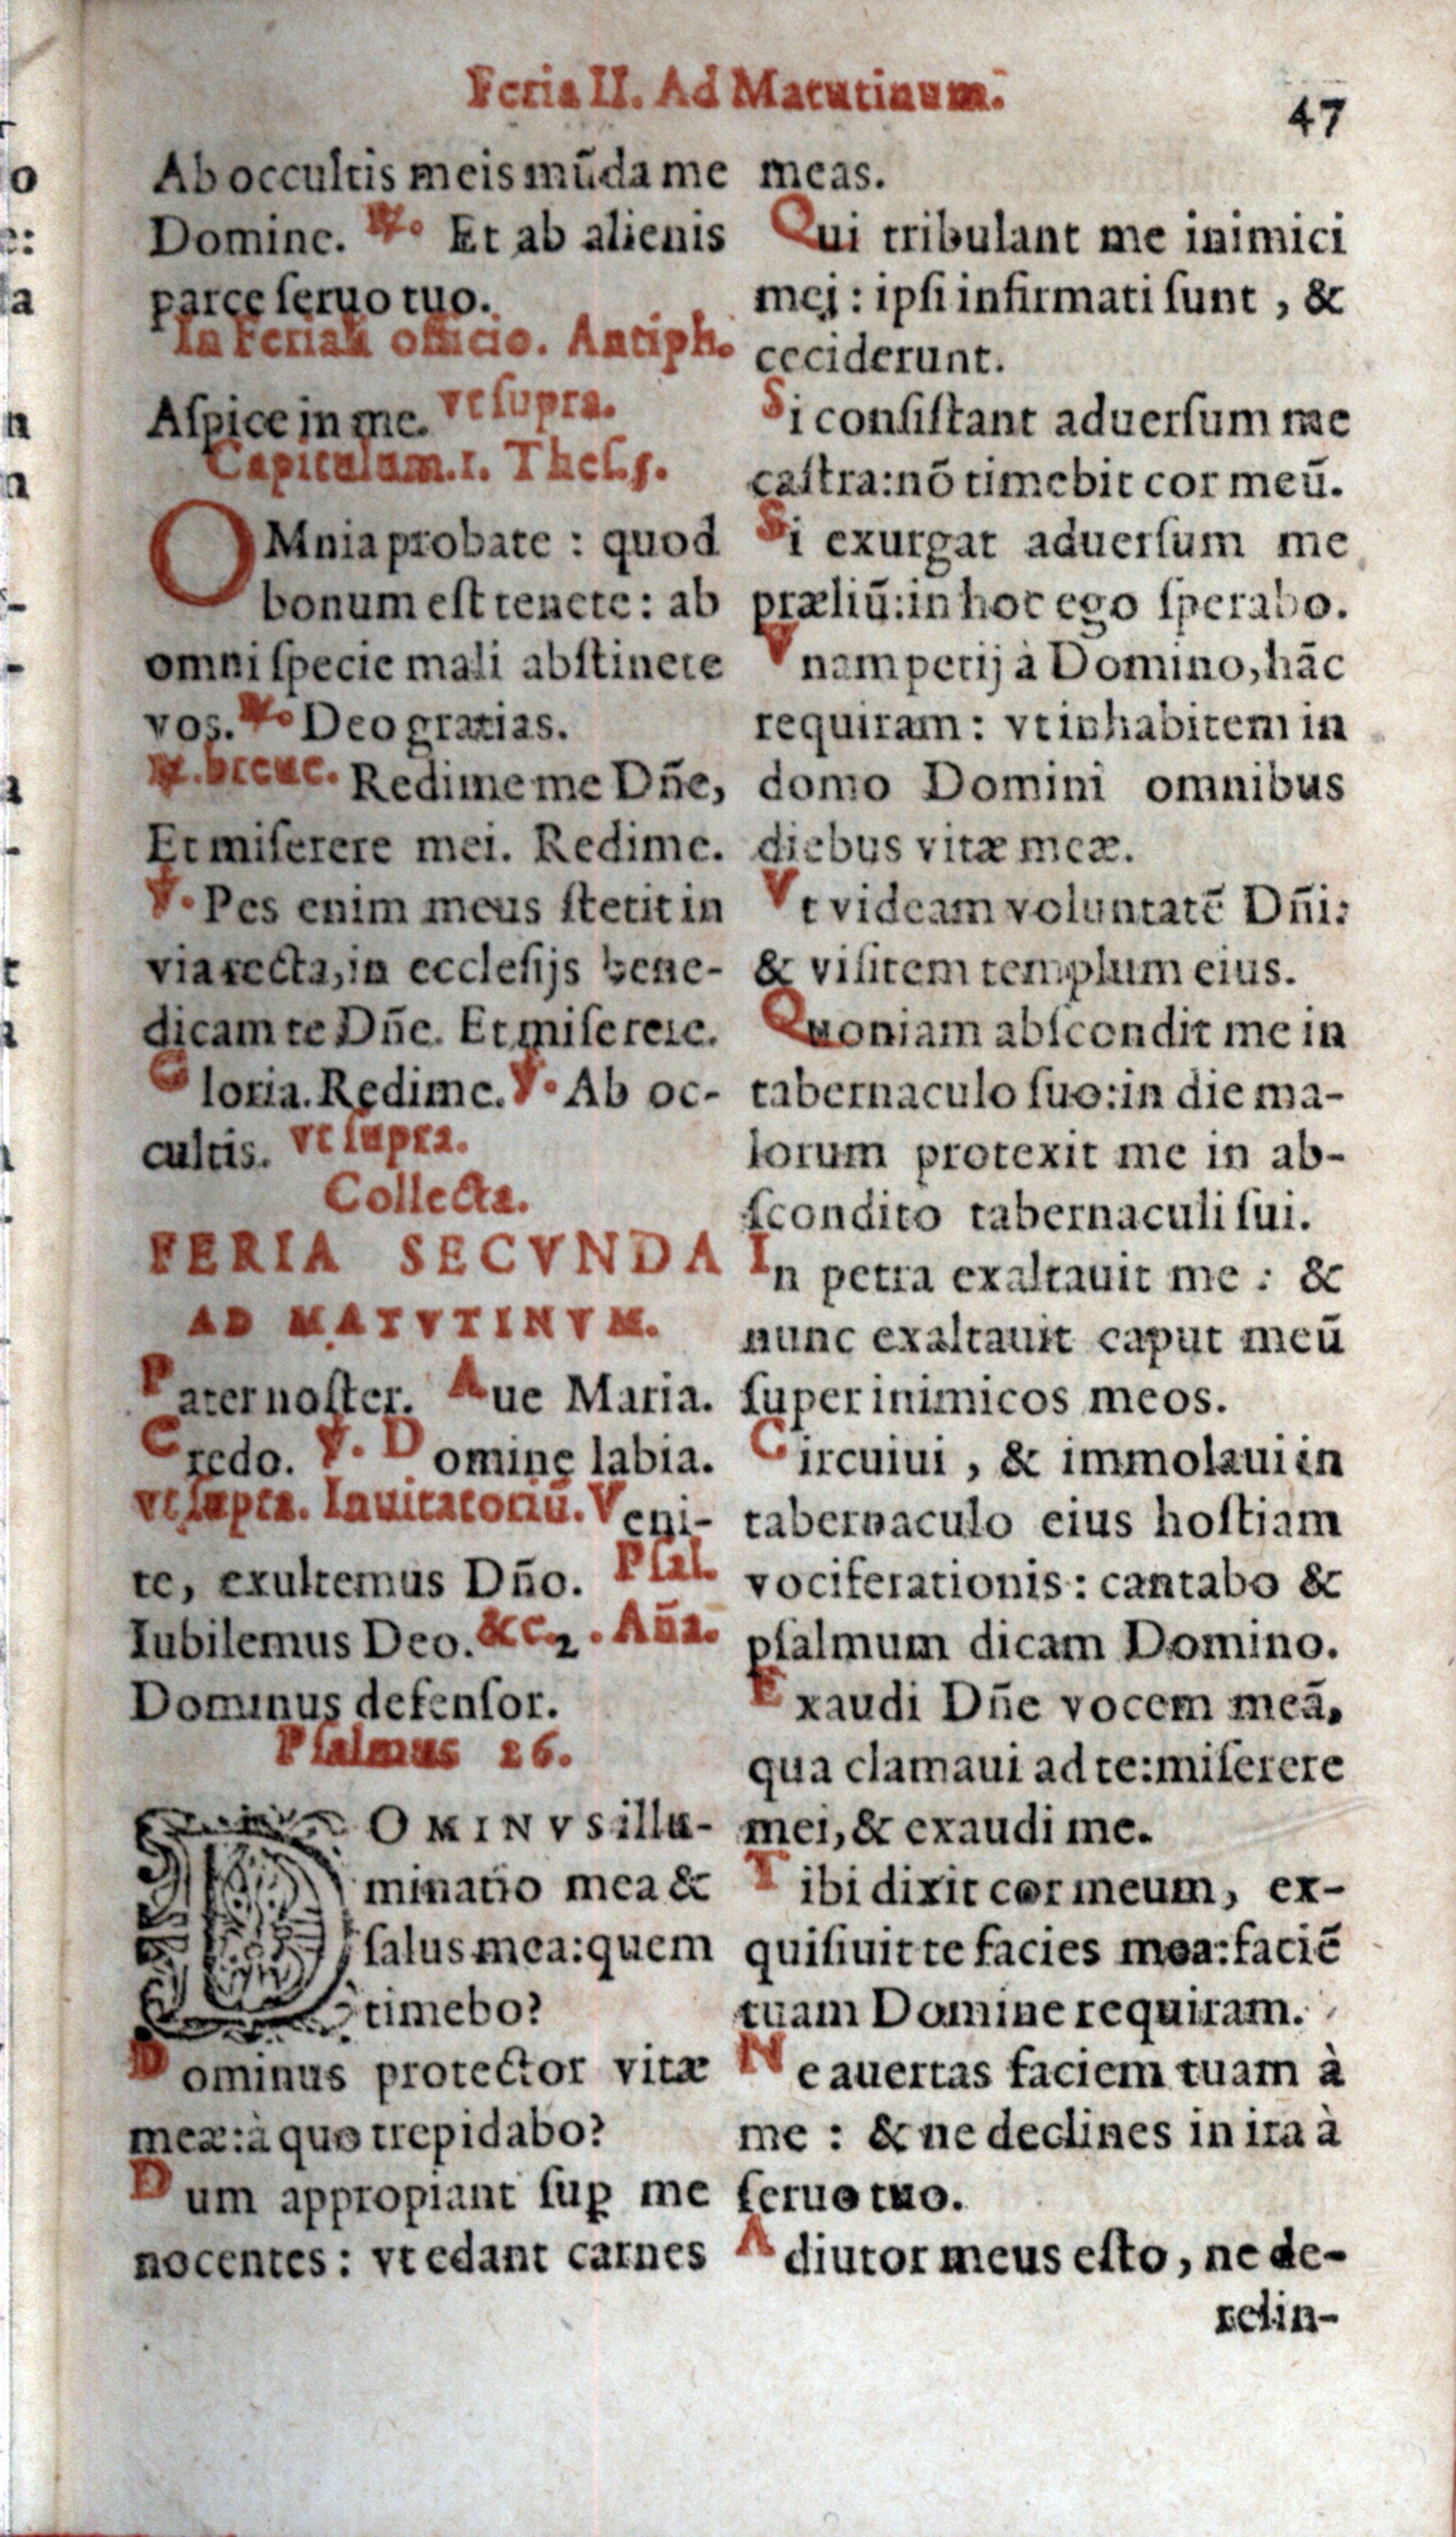 Feria II. Ad Matutinum.
47
Ab occultis meis mūda me
Domine. ℟. Et ab alienis
parce ſeruo tuo.
In Feriali officio. Antiph.
Aſpice in me. vt ſupra.
Capitulum. 1. Theſ. 5.
OMnia probate : quod
bonum eſt tenete : ab
omni ſpecie mali abſtinete
vos. ℟. Deo gratias.
℟. breue. Redime me Dñe,
Et miſerere mei. Redime.
℣. Pes enim meus ſtetit in
via recta, in eccleſijs bene-
dicam te Dñe. Et miſerere.
Gloria. Redime. ℣. Ab oc-
cultis. vt ſupra.
Collecta.
FERIA SECVNDA
AD MATVTINVM.
Pater noſter. Aue Maria.
Credo. ℣. Domine labia.
vt ſupra. Inuitatoriū. Veni-
te, exultemus Dño. Pſal.
Iubilemus Deo. &c. 2. Aña.
Dominus defenſor.
Pſalmus 26.
DOMINVS illu-
minatio mea &
ſalus mea: quem
timebo?
Dominus protector vitæ
meæ: à quo trepidabo?
Dum appropiant ſuꝑ me
nocentes : vt edant carnes
meas.
Qui tribulant me inimici
mei : ipſi infirmati ſunt , &
ceciderunt.
Si conſiſtant aduerſum me
caſtra: nō timebit cor meū.
Si exurgat aduerſum me
præliū: in hoc ego ſperabo.
Vnam petij à Domino, hāc
requiram : vt inhabitem in
domo Domini omnibus
diebus vitæ meæ.
Vt videam voluntatē Dñi:
& viſitem templum eius.
Quoniam abſcondit me in
tabernaculo ſuo: in die ma-
lorum protexit me in ab-
ſcondito tabernaculi ſui.
In petra exaltauit me : &
nunc exaltauit caput meū
ſuper inimicos meos.
Circuiui , & immolaui in
tabernaculo eius hoſtiam
vociferationis : cantabo &
pſalmum dicam Domino.
Exaudi Dñe vocem meā,
qua clamaui ad te: miſerere
mei, & exaudi me.
Tibi dixit cor meum, ex-
quiſiuit te facies mea: faciē
tuam Domine requiram.
Ne auertas faciem tuam à
me : & ne declines in ira à
ſeruo tuo.
Adiutor meus eſto, ne de-
relin-